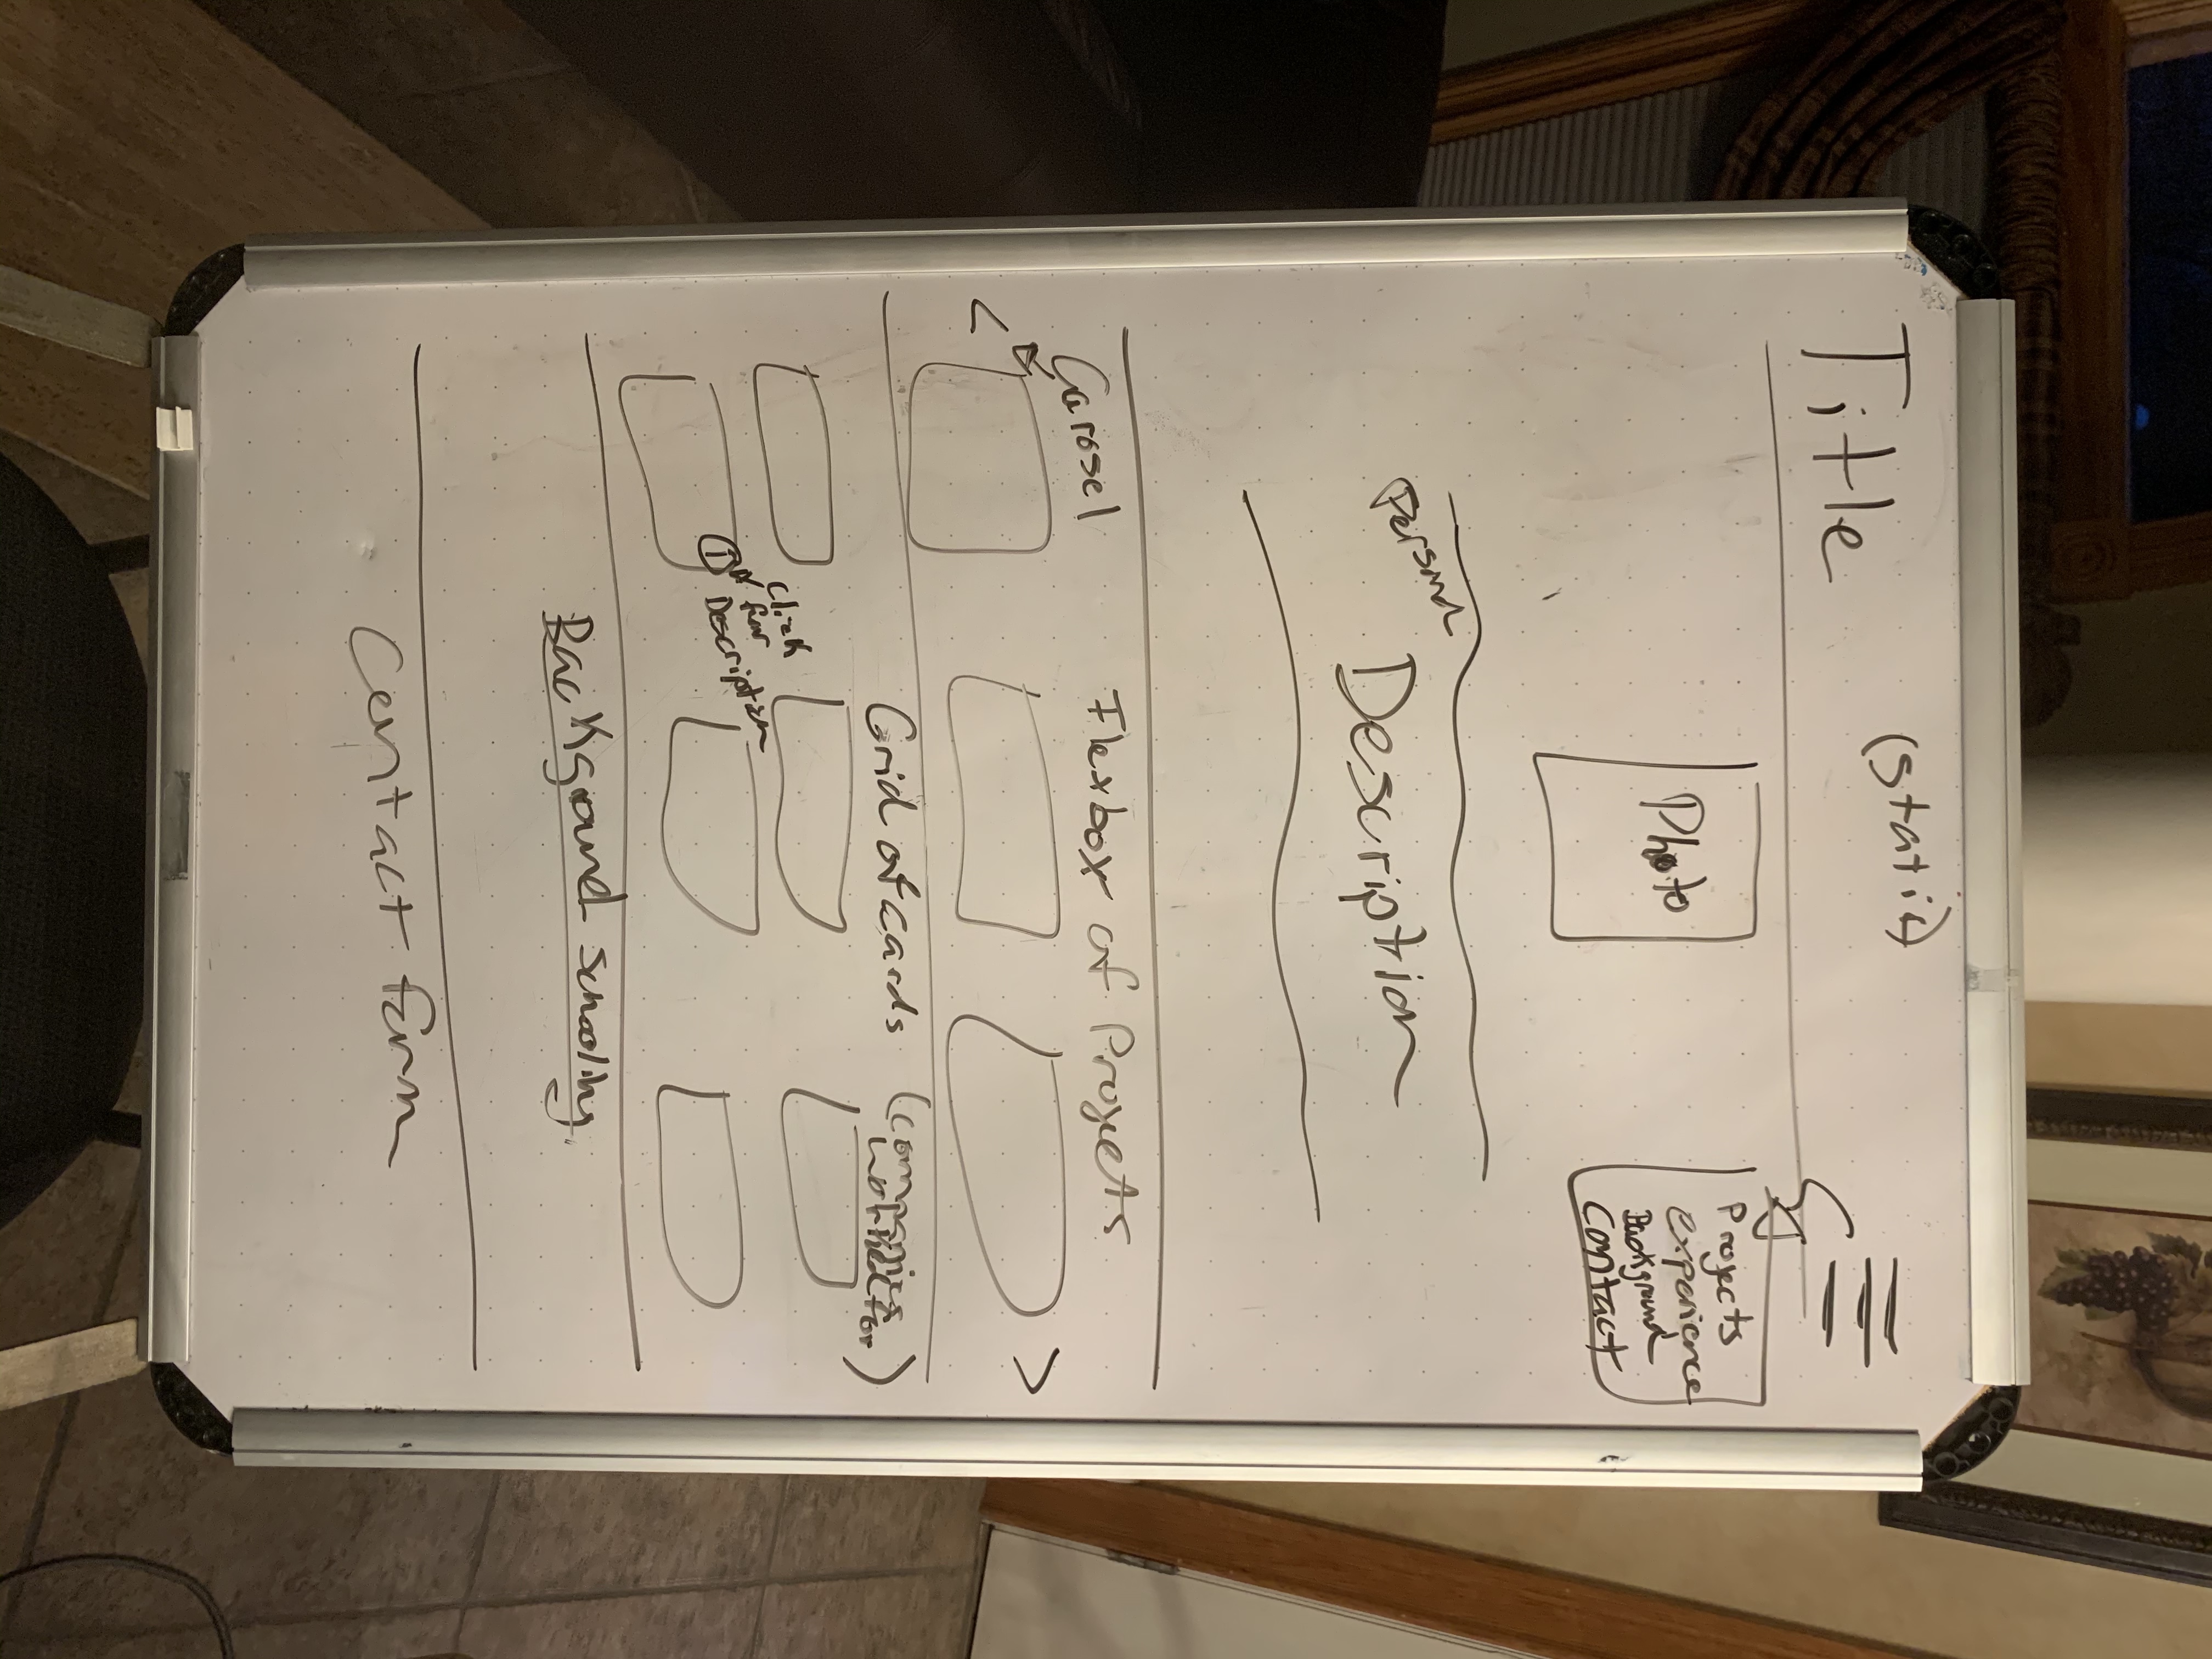 Title (static)
Photo
Projects
experience
Background
Contact
Personal
Description
Carosel
Flexbox of Projects
< >
Grid of cards (companies
worked for)
click
for
Description
①
Background schooling
Contact form